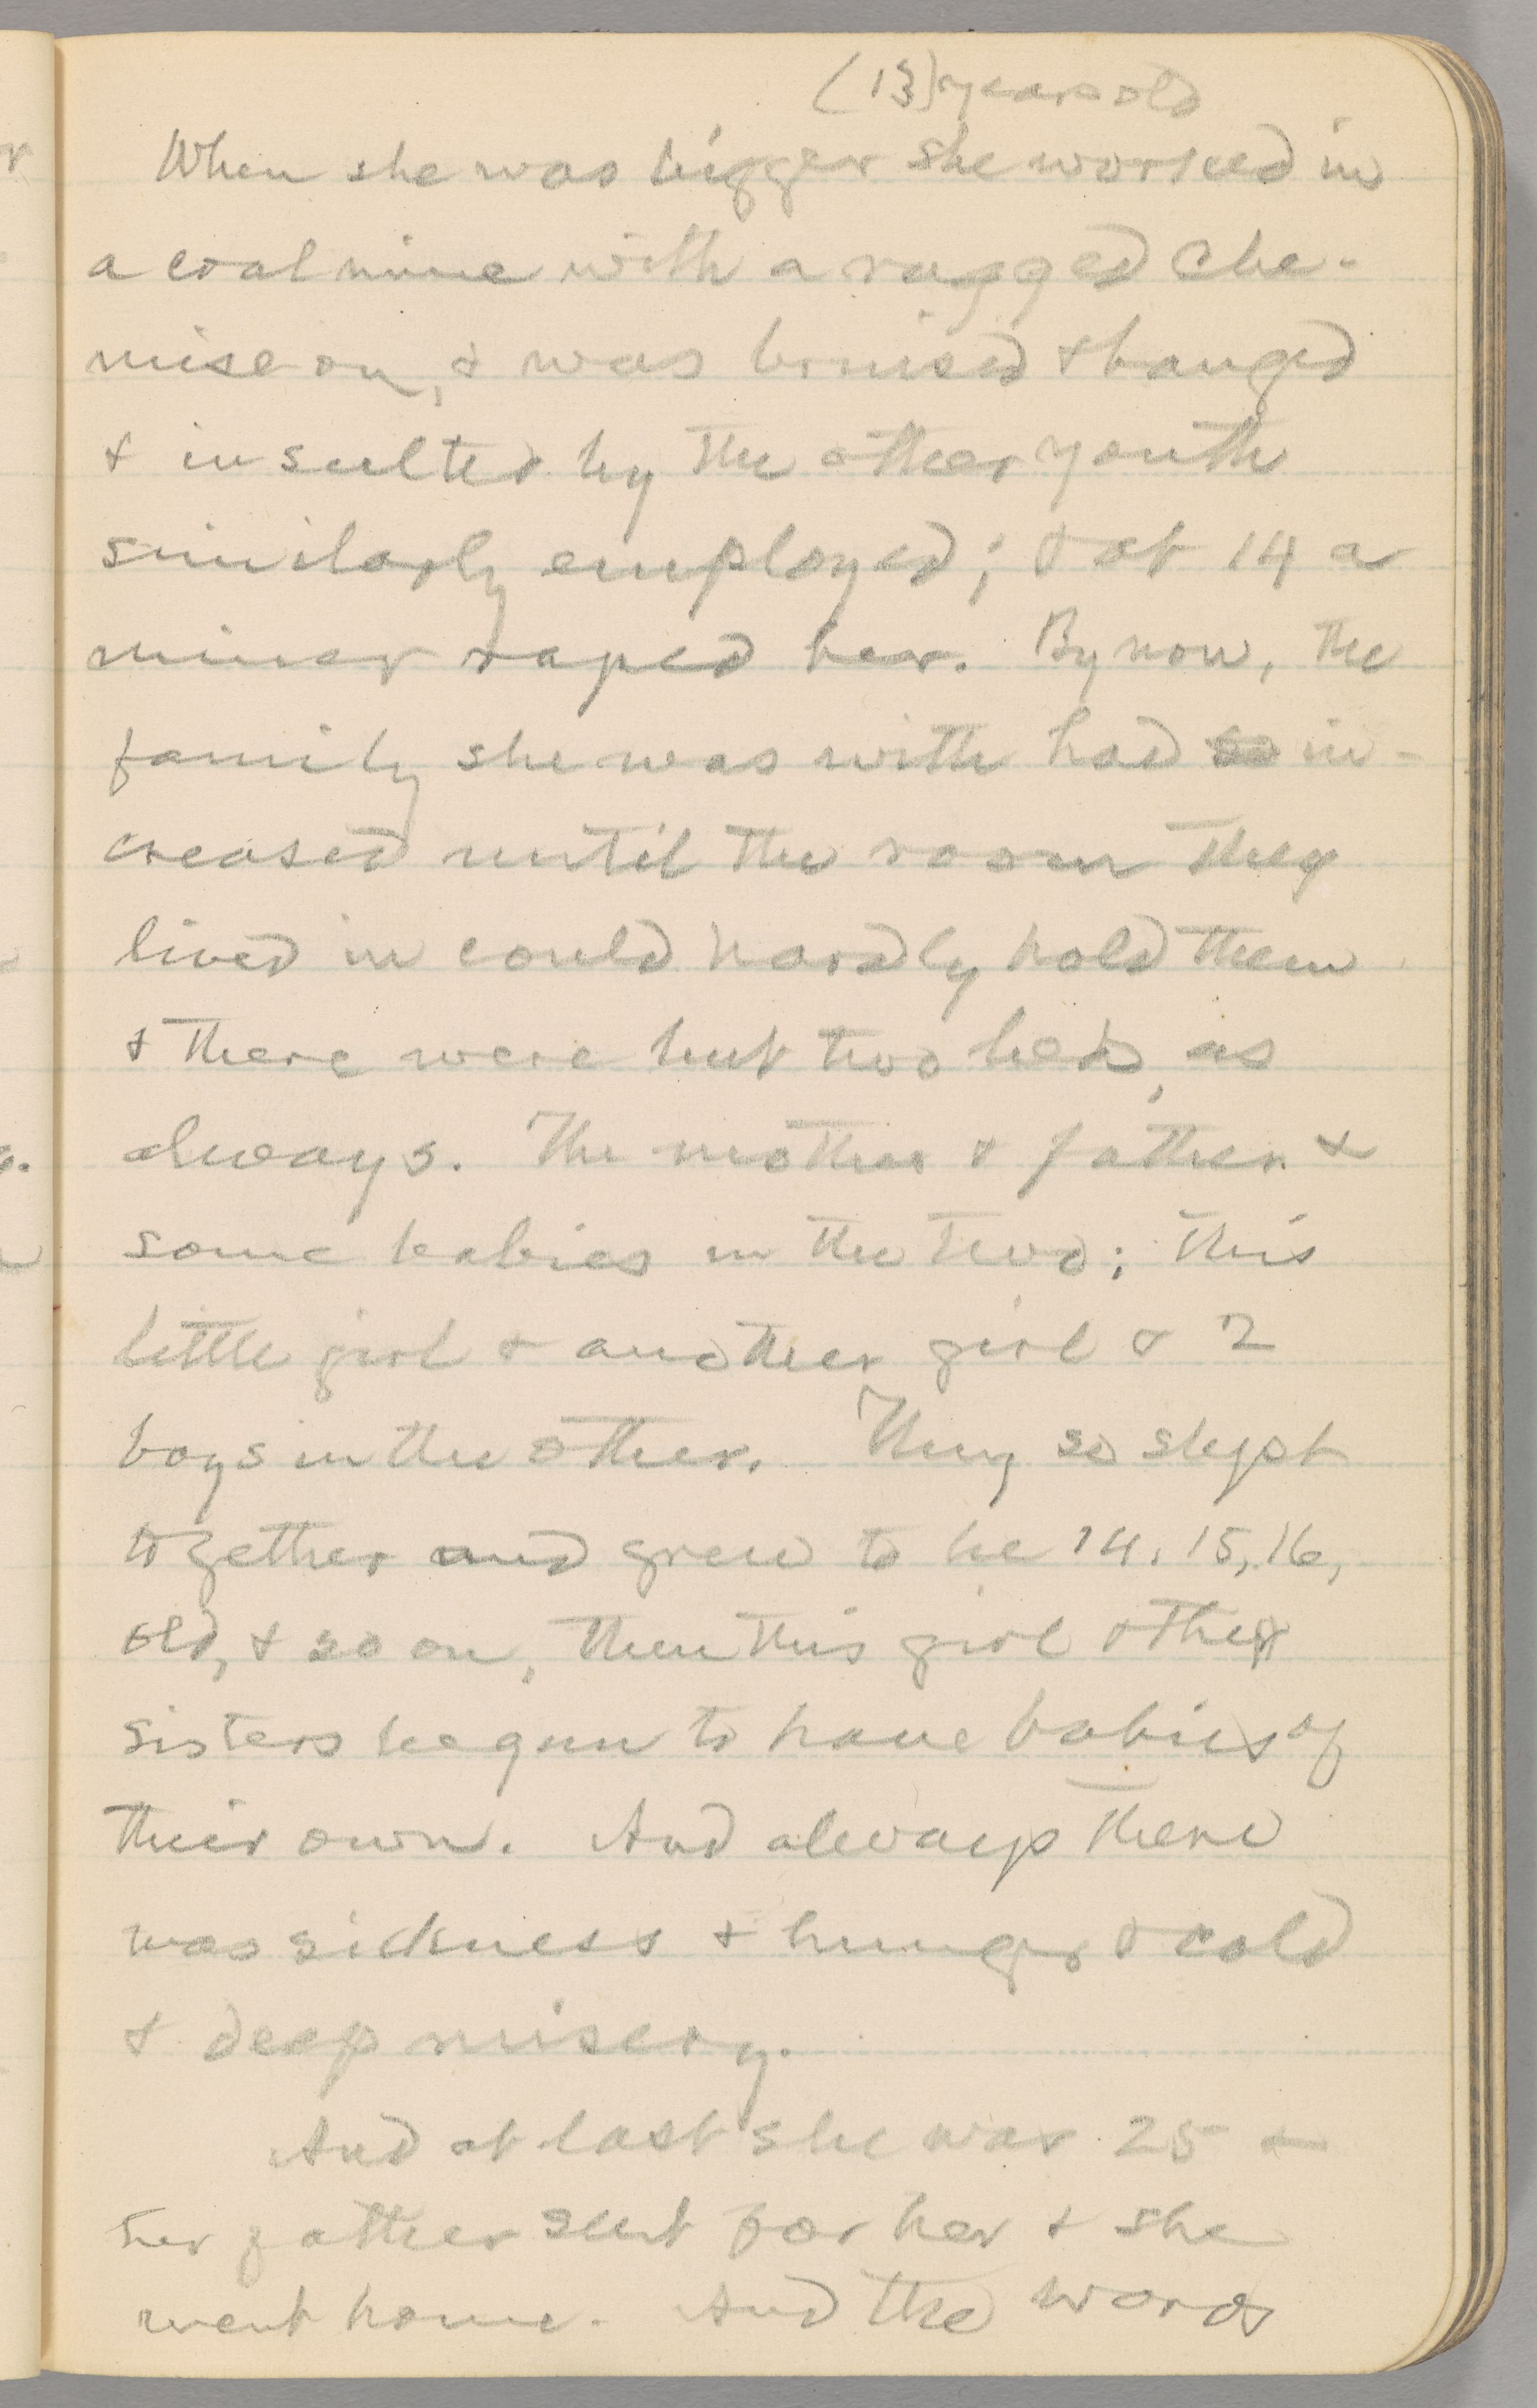 (13) years old
When she was bigger she worked in
a coal mine with a ragged che-
mise on, & was bruised & banged
& insulted by the other youth
similarly employed; & at 14 a
miner raped her. By now, the
family she was with had so in-
creased until the room they
lived in could hardly hold them
& there were but two beds, as
always. The mother & father &
some babies in the two; this
little girl & another girl & 2
boys in the other. They so slept
together and grew to be 14, 15, 16,
old, & so on, then this girl & the
sisters began to have babies of
their own. And always there
was sickness & hunger & cold
& deep misery.
And at last she was 25 &
her father sent for her & she
went home. And the words